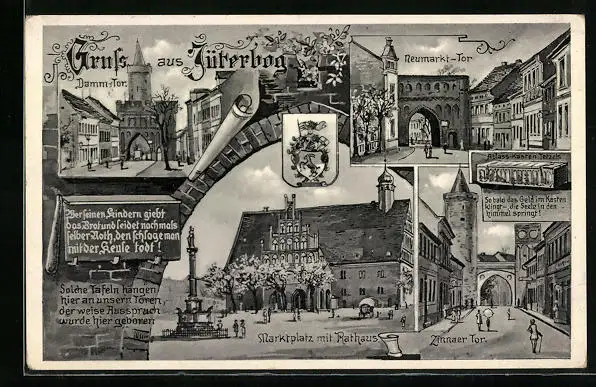 Gruß aus Jüterbog
Damm-Tor
Neumarkt-Tor
Ablass-Kasten Tetzels
So bald das Geld im Kasten
klingt – die Seele in den
Himmel springt!
Wer seinen Kindern giebt
das Brot und leidet nachmals
selber Noth, den schlage man
mit der Keule todt!
Solche Tafeln hängen
hier an unsern Toren,
der weise Ausspruch
wurde hier geboren
Marktplatz mit Rathaus
Zinnaer Tor